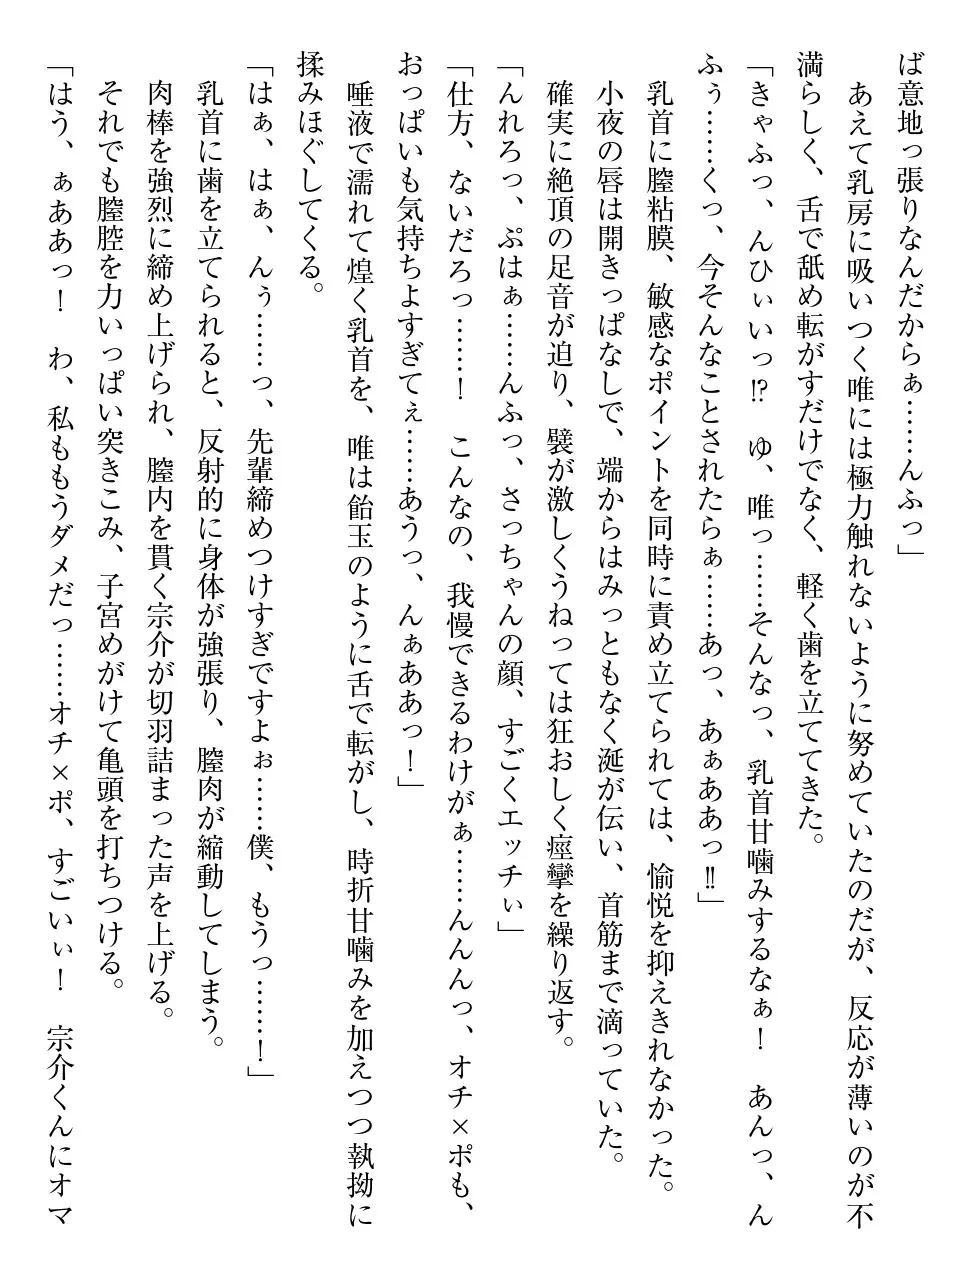 ば意地っ張りなんだからぁ……んふっ」
あえて乳房に吸いつく唯には極力触れないように努めていたのだが、反応が薄いのが不
満らしく、舌で舐め転がすだけでなく、軽く歯を立ててきた。
「きゃふっ、んひぃいっ!?　ゆ、唯っ……そんなっ、乳首甘噛みするなぁ！　あんっ、ん
ふぅ……くっ、今そんなことされたらぁ……あっ、あぁああっ!!」
乳首に膣粘膜、敏感なポイントを同時に責め立てられては、愉悦を抑えきれなかった。
小夜の唇は開きっぱなしで、端からはみっともなく涎が伝い、首筋まで滴っていた。
確実に絶頂の足音が迫り、襞が激しくうねっては狂おしく痙攣を繰り返す。
「んれろっ、ぷはぁ……んふっ、さっちゃんの顔、すごくエッチぃ」
「仕方、ないだろっ……！　こんなの、我慢できるわけがぁ……んんんっ、オチ×ポも、
おっぱいも気持ちよすぎてぇ……あうっ、んぁああっ！」
唾液で濡れて煌く乳首を、唯は飴玉のように舌で転がし、時折甘噛みを加えつつ執拗に
揉みほぐしてくる。
「はぁ、はぁ、んぅ……っ、先輩締めつけすぎですよぉ……僕、もうっ……！」
乳首に歯を立てられると、反射的に身体が強張り、膣肉が縮動してしまう。
肉棒を強烈に締め上げられ、膣内を貫く宗介が切羽詰まった声を上げる。
それでも膣腔を力いっぱい突きこみ、子宮めがけて亀頭を打ちつける。
「はう、ぁああっ！　わ、私ももうダメだっ……オチ×ポ、すごいぃ！　宗介くんにオマ